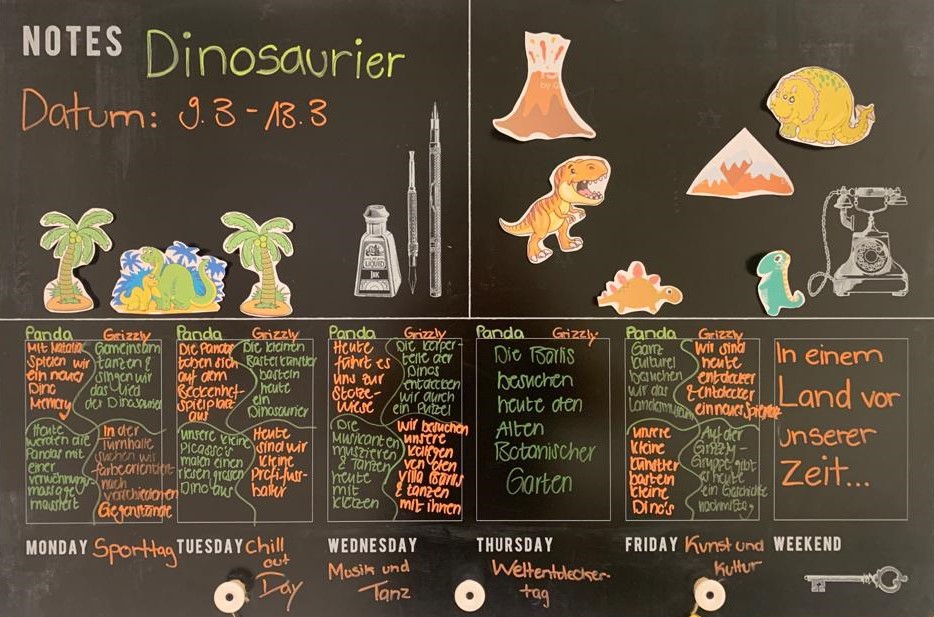 NOTES Dinosaurier
Datum: 9.3 - 13.3
LIQUID
INK
Panda Grizzly
Mit Natalia
Spielen wir
ein neues
Dino
Memory
Gemeinsam
tanzen &
singen wir
das Lied
der Dinosaurier
Heute
werden die
Pandas mit
einer
verwöhnungs-
massage
massiert
In der
Turnhalle
suchen wir
farbeorientiert
nach
verschiedenen
Gegenstände
MONDAY Sporttag
Panda Grizzly
Die Pandas
toben sich
auf dem
Beckenhof-
spielplatz
aus
Die kleinen
Bastelkünstler
basteln
heute
ein
Dinosaurier
unsere kleine
Picasso's
malen einen
riesen grossen
Dino aus
Heute
sind wir
kleine
Profi-fuss-
baller
TUESDAY Chill
out
Day
Panda Grizzly
Heute
führt es
uns zur
Stolze-
Wiese
Die körper-
teile der
Dinos
entdecken
wir durch
ein Putzel
Die
Musikanten
musizieren
& tanzen
heute
mit
klötzen
Wir besuchen
unsere
kollegen
von den
Villa Barlis
& tanzen
mit ihnen
WEDNESDAY
Musik und
Tanz
Panda Grizzly
Die Barlis
besuchen
heute den
Alten
Botanischer
Garten
THURSDAY
Weltentdecker-
tag
Panda Grizzly
Ganz
kulturel
besuchen
wir das
Landesmuseum
Wir sind
heute
entdecker
& entdecken
ein neues
unsere
kleine
künstler
basteln
kleine
Dino's
Auf der
Grizzly-
Gruppe gibt
es heute
ein Geschichte
nachmittag
FRIDAY Kunst und
Kultur
In einem
Land vor
unserer
Zeit...
WEEKEND